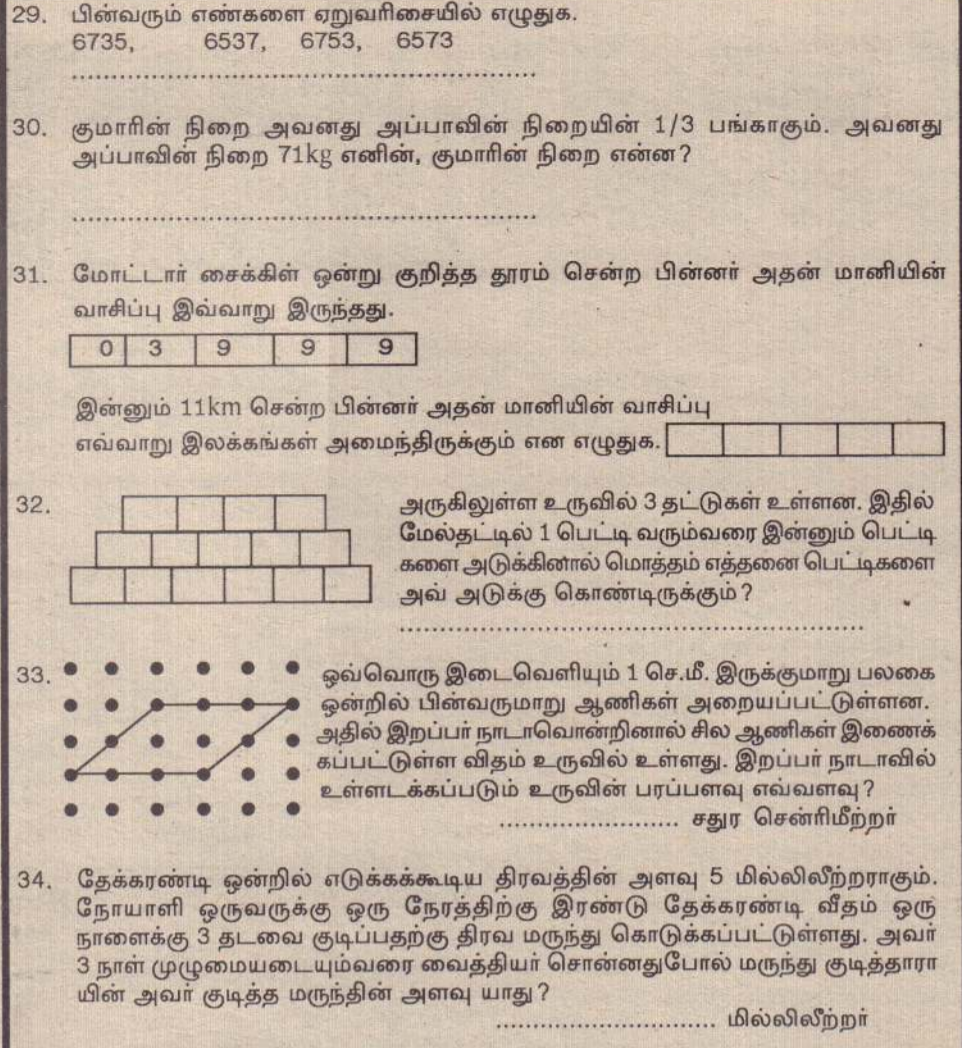 29. பின்வரும் எண்களை ஏறுவரிசையில் எழுதுக.
6735, 6537, 6753, 6573
............................................................
30. குமாரின் நிறை அவனது அப்பாவின் நிறையின் 1/3 பங்காகும். அவனது
அப்பாவின் நிறை 71kg எனின், குமாரின் நிறை என்ன?
............................................................
31. மோட்டார் சைக்கிள் ஒன்று குறித்த தூரம் சென்ற பின்னர் அதன் மானியின்
வாசிப்பு இவ்வாறு இருந்தது.
0 3 9 9 9
இன்னும் 11km சென்ற பின்னர் அதன் மானியின் வாசிப்பு
எவ்வாறு இலக்கங்கள் அமைந்திருக்கும் என எழுதுக.
32. அருகிலுள்ள உருவில் 3 தட்டுகள் உள்ளன. இதில்
மேல்தட்டில் 1 பெட்டி வரும்வரை இன்னும் பெட்டி
களை அடுக்கினால் மொத்தம் எத்தனை பெட்டிகளை
அவ் அடுக்கு கொண்டிருக்கும்?
............................................................
33. ஒவ்வொரு இடைவெளியும் 1 செ.மீ. இருக்குமாறு பலகை
ஒன்றில் பின்வருமாறு ஆணிகள் அறையப்பட்டுள்ளன.
அதில் இறப்பர் நாடாவொன்றினால் சில ஆணிகள் இணைக்
கப்பட்டுள்ள விதம் உருவில் உள்ளது. இறப்பர் நாடாவில்
உள்ளடக்கப்படும் உருவின் பரப்பளவு எவ்வளவு?
........................ சதுர சென்ரிமீற்றர்
34. தேக்கரண்டி ஒன்றில் எடுக்கக்கூடிய திரவத்தின் அளவு 5 மில்லிலீற்றராகும்.
நோயாளி ஒருவருக்கு ஒரு நேரத்திற்கு இரண்டு தேக்கரண்டி வீதம் ஒரு
நாளைக்கு 3 தடவை குடிப்பதற்கு திரவ மருந்து கொடுக்கப்பட்டுள்ளது. அவர்
3 நாள் முழுமையடையும்வரை வைத்தியர் சொன்னதுபோல் மருந்து குடித்தாரா
யின் அவர் குடித்த மருந்தின் அளவு யாது?
............................. மில்லிலீற்றர்